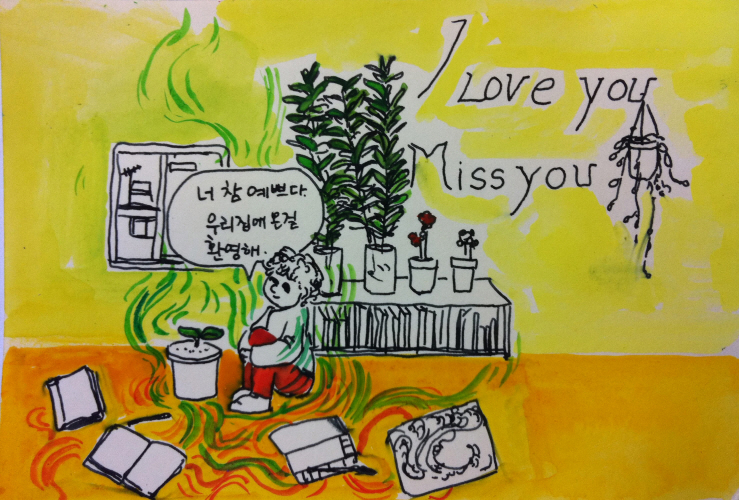 I Love you
Miss you
너 참 예쁘다.
우리집에 온걸
환영해.